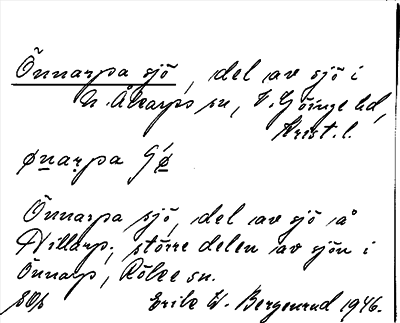 Önnarpa sjö, del av sjö i
N. Åkarps sn, V. Göinge hd,
Krist. l.
ønarpa
Önnarpa sjö, del av sjö å
Hillarp; större delen av sjön i
Önnarp, Röke sn.
Erik W. Bergenrud 1946.